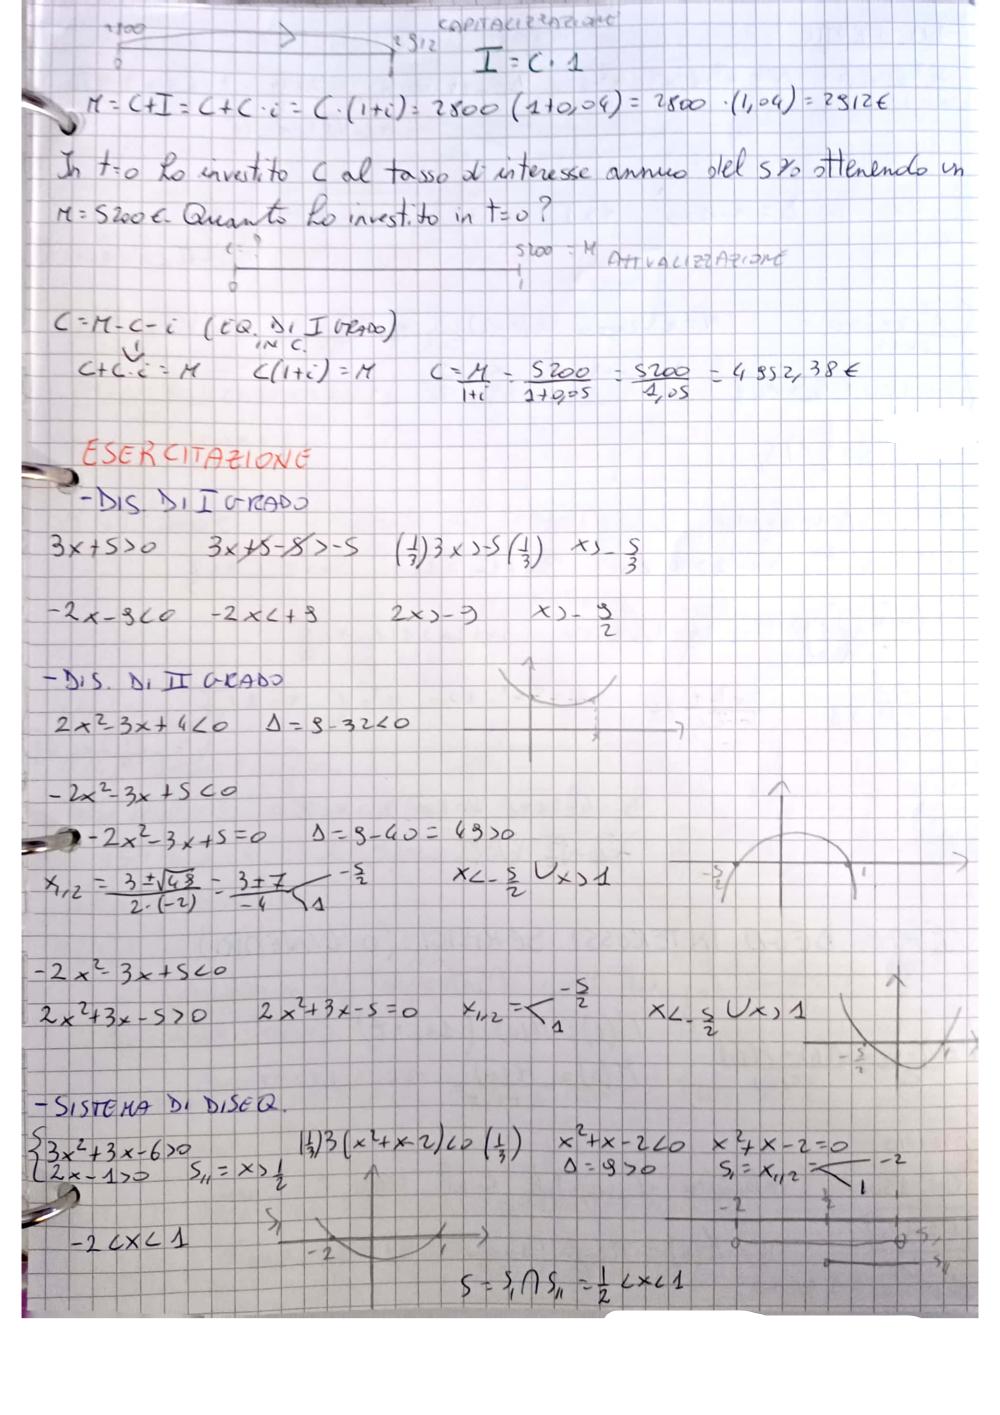 2800 CAPITALIZZAZIONE
2912
0 1
I = C · 1
M = C+I = C+C·i = C·(1+i) = 2800 (1+0,04) = 2800 ·(1,04) = 2912€
In t=0 ho investito C al tasso d'interesse annuo del 5% ottenendo un
M = 5200€. Quanto ho investito in t=0?
C=? 5200 = M ATTUALIZZAZIONE
0 1
C = M-C-i (EQ. DI I GRADO)
IN C.
C+C·i = M C(1+i) = M C = M/1+i = 5200/1+0,05 = 5200/1,05 = 4952,38€
ESERCITAZIONE
- DIS. DI I GRADO
3x+5>0 3x+5-5>-5 (1/3)3x>-5(1/3) x>-5/3
-2x-9<0 -2x<+9 2x>-9 x>-9/2
- DIS. DI II GRADO
2x²-3x+4<0 Δ=9-32<0
-2x²-3x+5<0
-2x²-3x+5=0 Δ=9-40=49>0
x1,2 = 3±√49/2·(-2) = 3±7/-4 -5/2 1 x<-5/2 ∪ x>1
-5/2 1
-2x²-3x+5<0
2x²+3x-5>0 2x²+3x-5=0 x1,2 = -5/2 1 x<-5/2 ∪ x>1
-5/2 1
- SISTEMA DI DISEQ.
{3x²+3x-6>0 (1/3)3(x²+x-2)<0(1/3) x²+x-2<0 x²+x-2=0
2x-1>0 S,, = x>1/2 Δ=9>0 S, = x1,2 = -2 1
-2 1/2 1
-2<x<1 S, -2 1 S,
S,,
S = S,∩S,, = 1/2<x<1